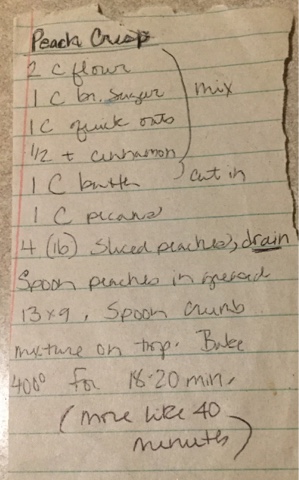 Peach Crisp
2 C flour
1 C br. sugar
1 C quick oats
mix
1/2 t cinnamon
1 C butter
cut in
1 C pecans
4 (lb) sliced peaches, drain
Spoon peaches in greased
13x9. Spoon crumb
mixture on top. Bake
400° for 18-20 min.
(more like 40
minutes)